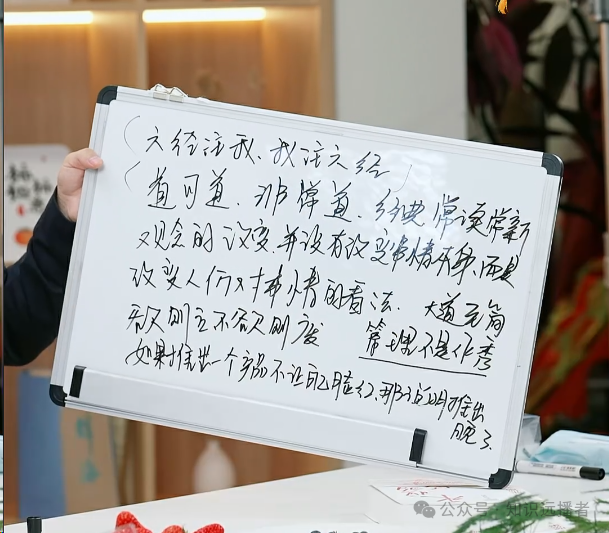 (六经注我、我注六经)
(道可道、非常道、经典常读常新
观念的改变,并没有改变事情本身、而是
改变人们对事情的看法. 大道至简
预则立不预则废 管理不是作秀
如果推出一个产品不让自己脸红,那说明推出
晚了.
公众号·知识玩播者